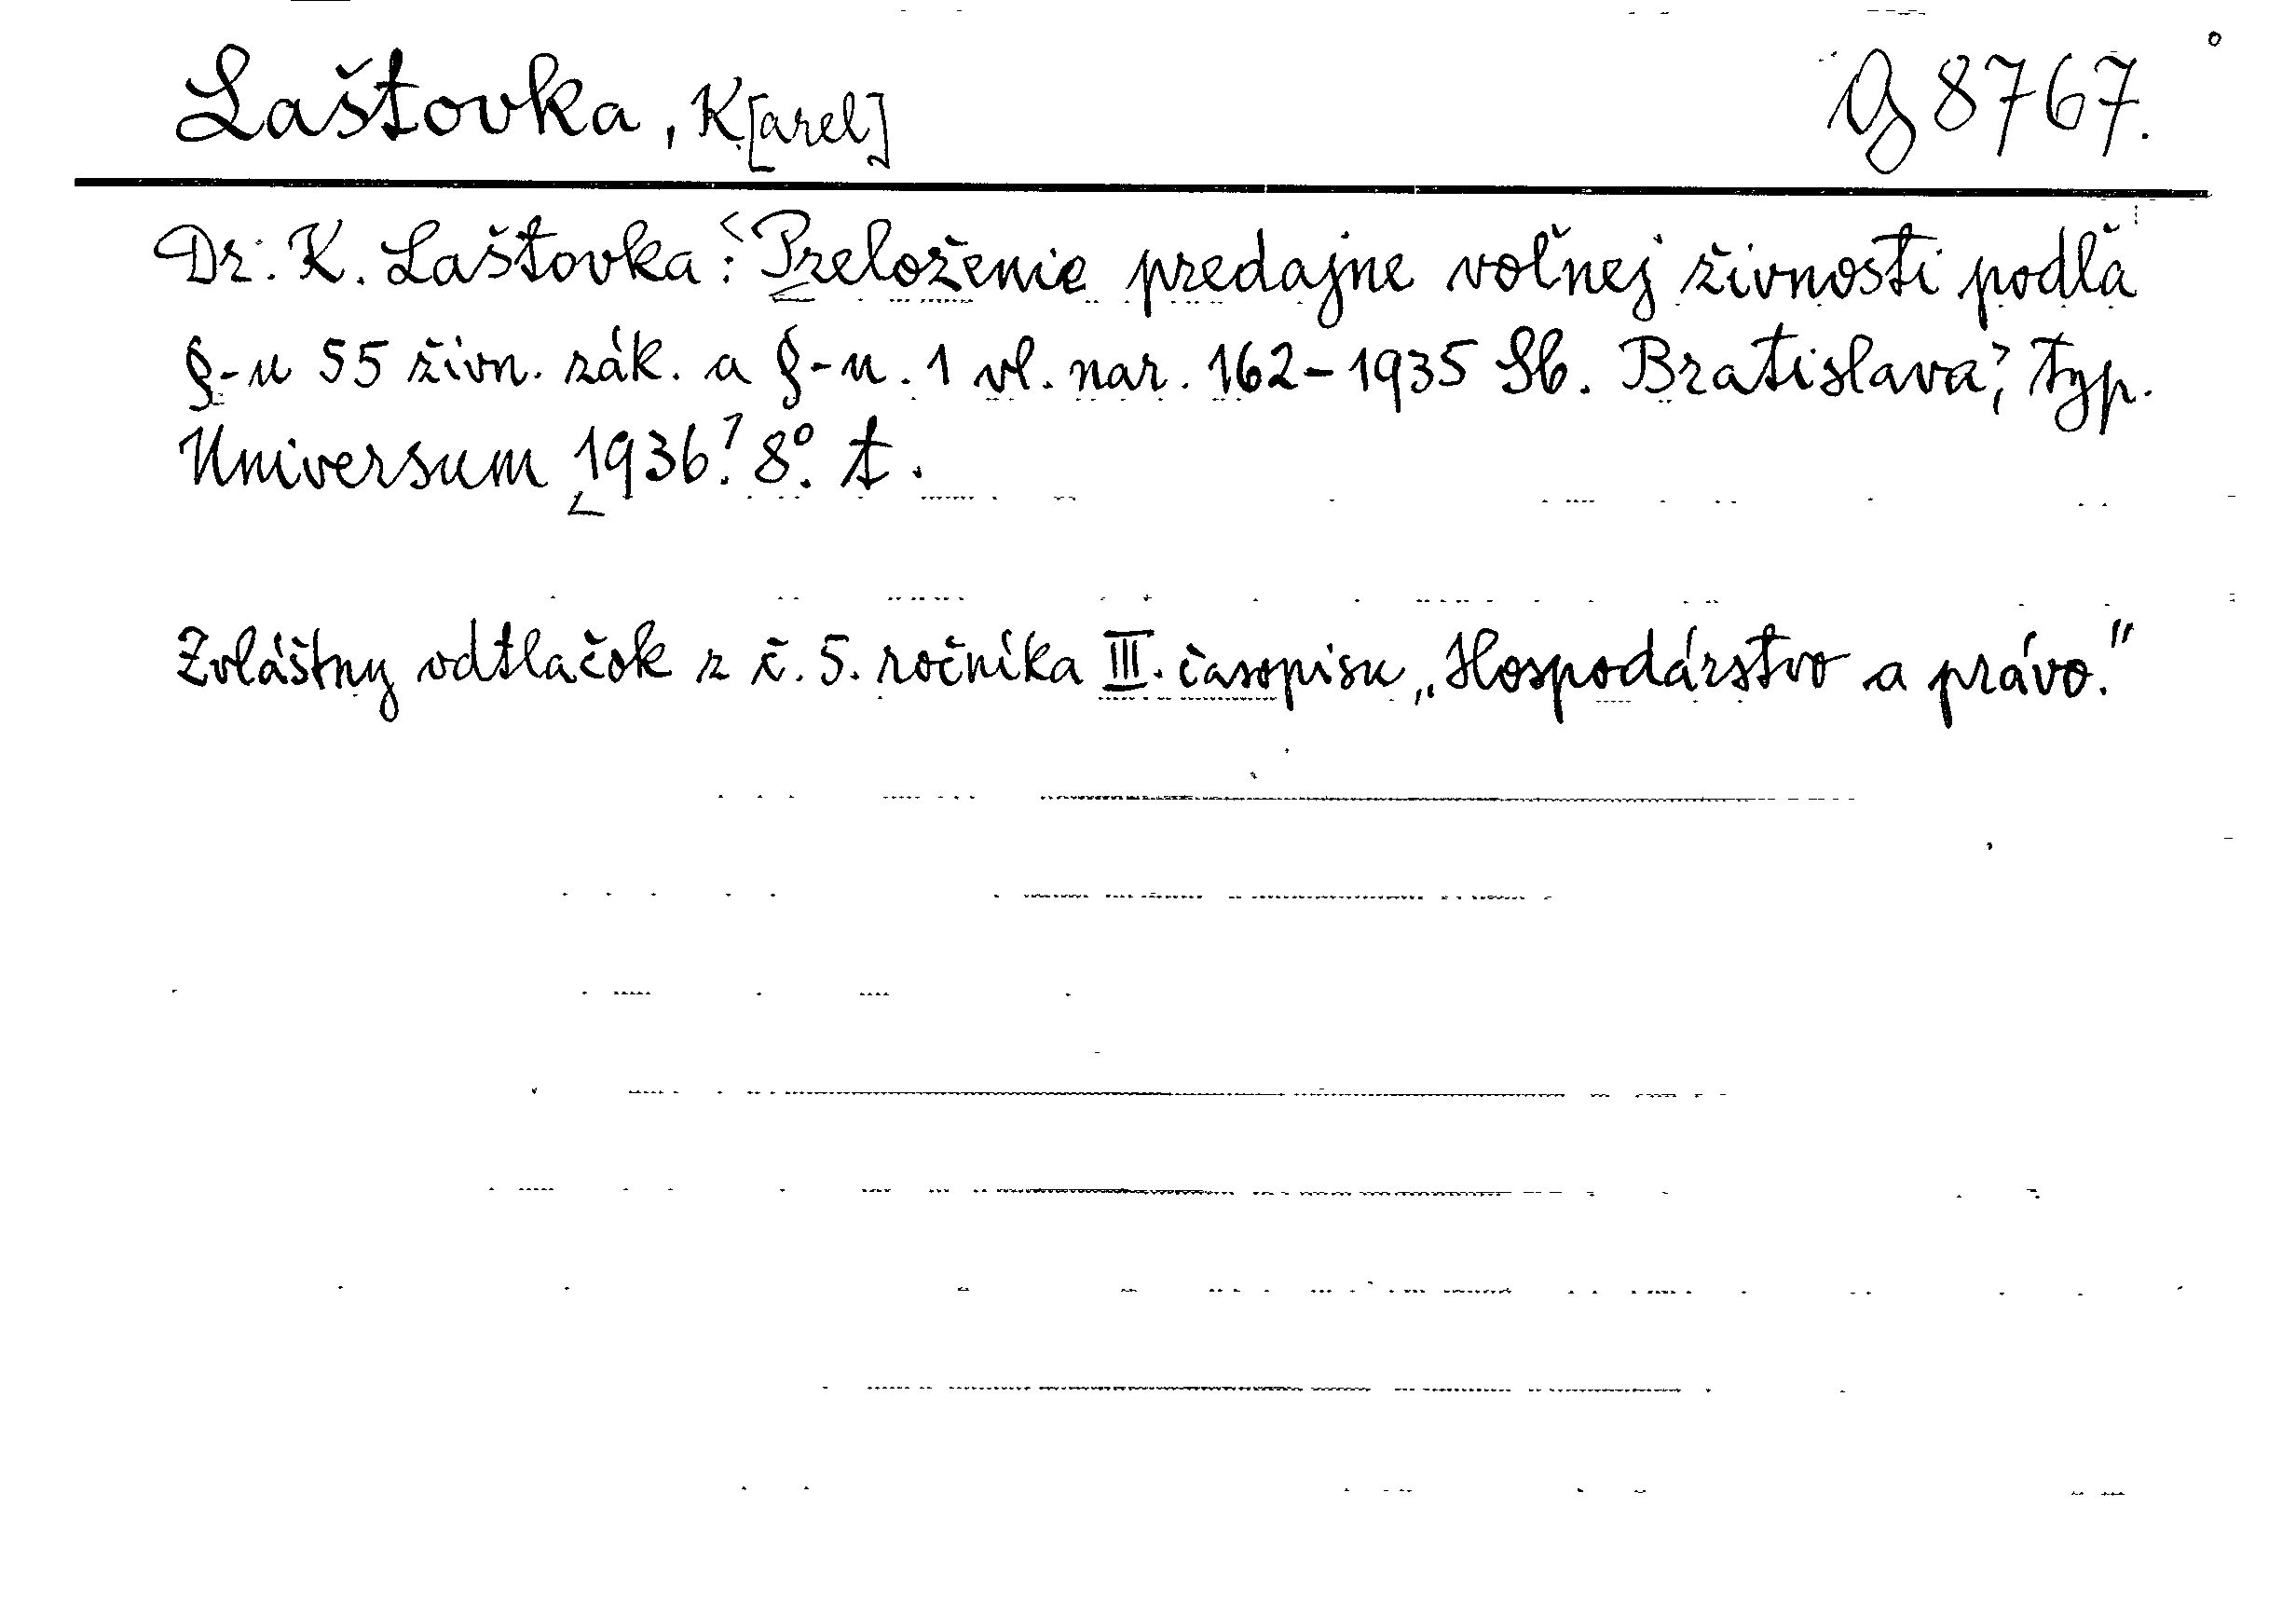 Laštovka, K[arel]
G 8767.
Dr. K. Laštovka: <Preloženie predajne voľnej živnosti podľa
§-u 55 živn. zák. a §-u. 1 vl. nar. 162-1935 Sb. Bratislava>, typ.
Universum <1936>. 8°. t.
Zvláštny odtlačok z č. 5. ročníka III. časopisu „Hospodárstvo a právo."